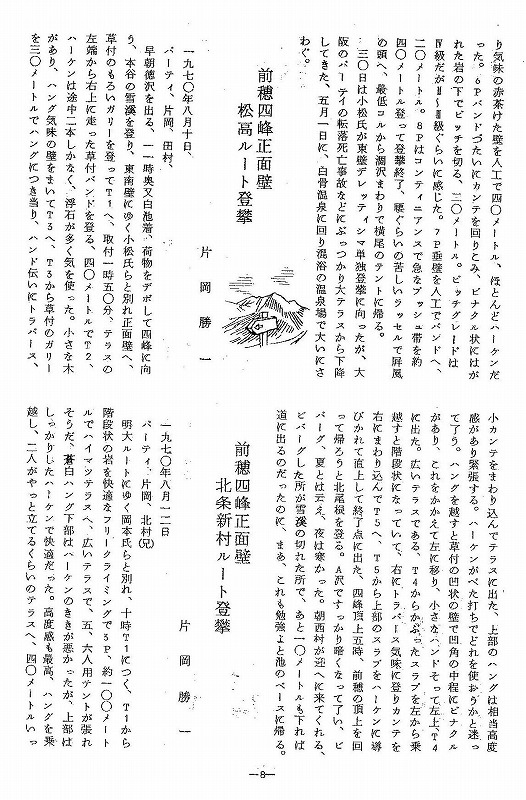 り気味の赤茶けた壁を人工で四〇メートル、ほとんどハーケンだ
った。6Pバンドづたいにカンテを回りこみ、ピナクル状にはが
れた岩の下でピッチを切る、三〇メートル。ピッチグレードは
Ⅳ級だがⅡ〜Ⅲ級ぐらいに感じた。7P垂壁を人工でバンドへ、
二〇メートル。8Pはコンティニアンスで急なブッシュ帯を約
四〇メートル登って登攀終了、腰ぐらいの苦しいラッセルで屏風
の頭へ、最低コルから涸沢まわりで横尾のテントに帰る。
三〇日は小松氏が東壁デレッティシマ単独登攀に向ったが、大
阪のパーティの転落死亡事故などにぶっつかり大テラスから下降
してきた、五月一日に、白骨温泉に回り混浴の温泉場で大いにさ
わぐ。
前穂四峰正面壁
松高ルート登攀
片岡勝一
一九七〇年八月十日、
パーティ、片岡、田村、
早朝徳沢を出る、一一時奥又白池着、荷物をデポして四峰に向
う、本谷の雪渓を登り、東南壁にゆく小松氏らと別れ正面壁へ、
草付のもろいガリーを登ってT1へ、取付一時五〇分、テラスの
左端から右上に走った草付バンドを登る、四〇メートルでT2、
ハーケンは途中二本しかなく、浮石が多く気を使った。小さな木
があり、ハング気味の壁をまいてT3へ、T3から草付のガリー
を三〇メートルでハングにつき当り、ハンド伝いにトラバース、
小カンテをまわり込んでテラスに出た、上部のハングは相当高度
感があり緊張する。ハーケンがべた打ちでどれを使おうかと迷っ
て了う。ハングを越すと草付の凹状の壁で凹角の中程にピナクル
があり、これをかかえて左に移り、小さなバンドそって左上、T4
に出た。広いテラスである、T4からかぶったスラブを左から乗
越すと階段状になっていて、右にトラバース気味に登りカンテを
右にまわり込んでT5へ、T5から上部のスラブをハーケンに導
びかれて直上して終了点に出た、四峰頂上五時、前穂の頂上を回
って帰ろうと北尾根を登る。A沢ですっかり暗くなって了い、ビ
バーグ、夏とは云え、夜は寒かった。朝西村が迎へに来てくれる、
ビバーグした所が雪渓の切れた所で、あと一〇メートルも下れば
道に出るのだったのに、まあ、これも勉強よと池のベースに帰る。
前穂四峰正面壁
北条新村ルート登攀
片岡勝一
一九七〇年八月一二日
パーティ、片岡、北村(兄)
明大ルートにゆく岡本氏らと別れ、十時T1につく、T1から
階段状の岩を快適なフリークライミングで3P、約一〇〇メート
ルでハイマツテラスへ、広いテラスで、五、六人用テントが張れ
そうだ、蒼白ハング下部はハーケンのききが悪かったが、上部は
しっかりしたハーケンで快適だった。高度感も最高、ハングを乗
越し、二人がやっと立てるくらいのテラスへ、四〇メートルいっ
—8—